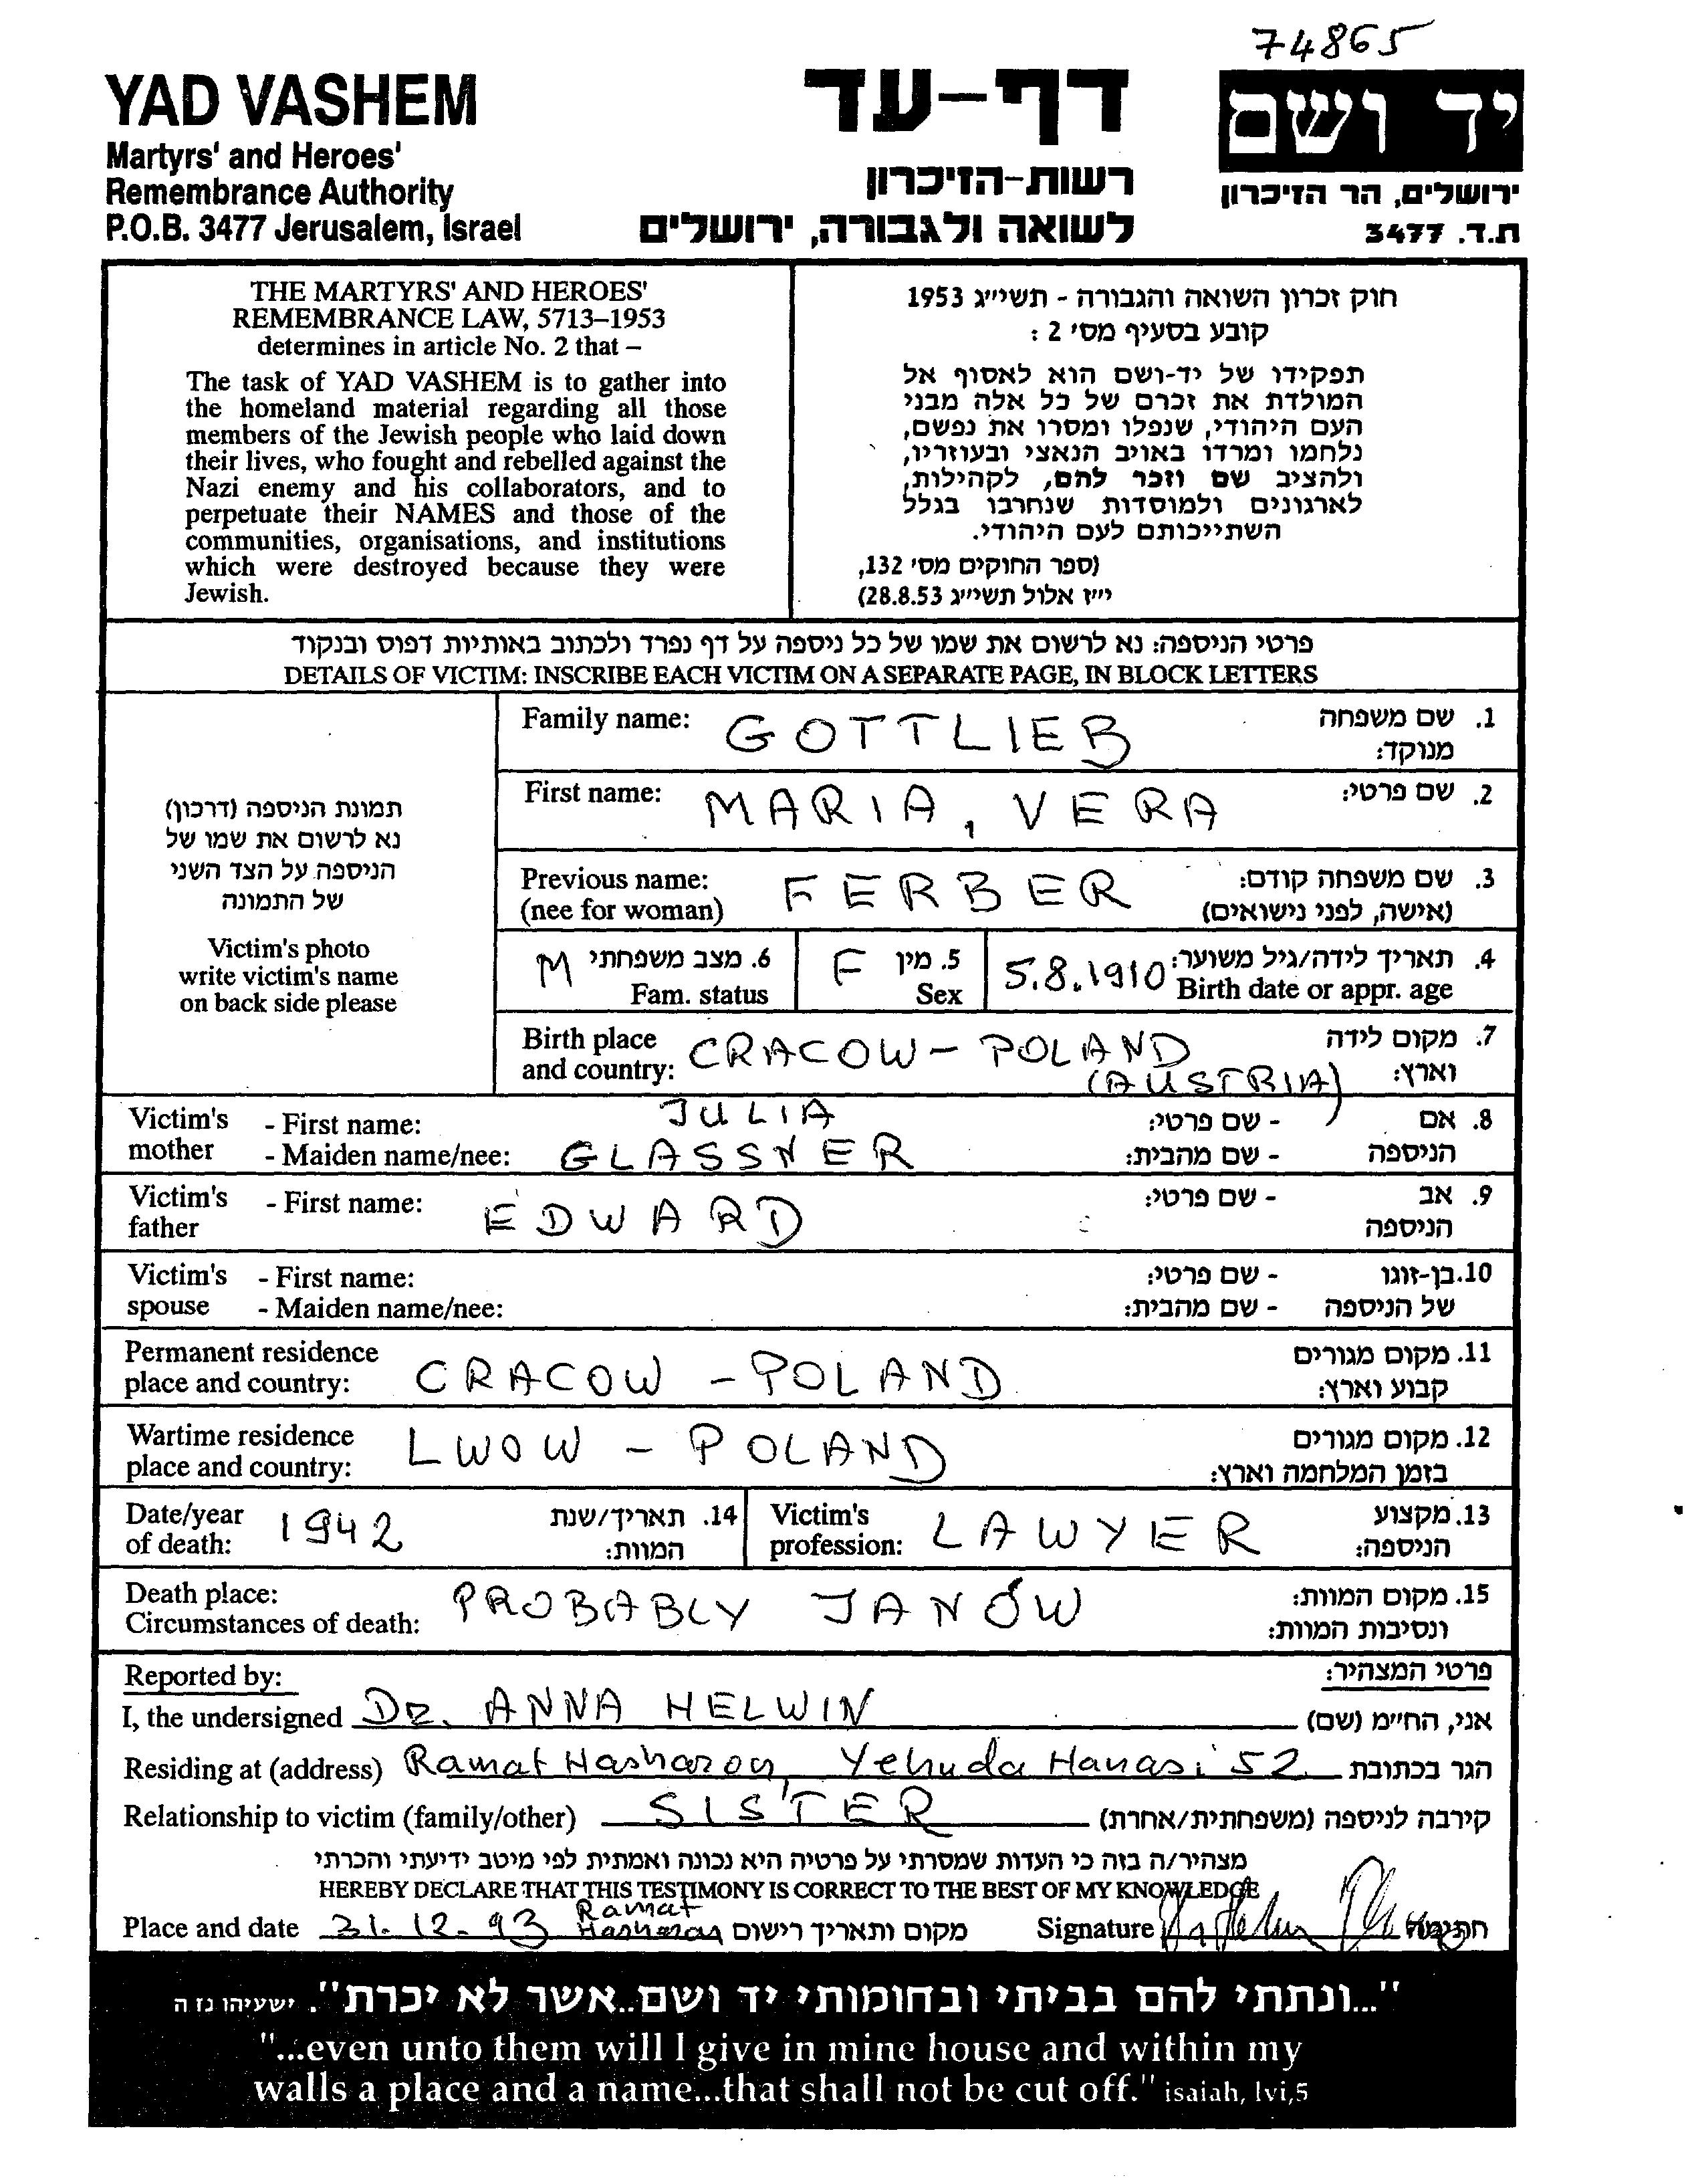 74865
YAD VASHEM
Martyrs' and Heroes'
Remembrance Authority
P.O.B. 3477 Jerusalem, Israel
דף-עד
רשות-הזיכרון
לשואה ולגבורה, ירושלים
יד ושם
ירושלים, הר הזיכרון
ת.ד. 3477
THE MARTYRS' AND HEROES'
REMEMBRANCE LAW, 5713–1953
determines in article No. 2 that –
The task of YAD VASHEM is to gather into
the homeland material regarding all those
members of the Jewish people who laid down
their lives, who fought and rebelled against the
Nazi enemy and his collaborators, and to
perpetuate their NAMES and those of the
communities, organisations, and institutions
which were destroyed because they were
Jewish.
חוק זכרון השואה והגבורה - תשי״ג 1953
קובע בסעיף מס׳ 2 :
תפקידו של יד-ושם הוא לאסוף אל
המולדת את זכרם של כל אלה מבני
העם היהודי, שנפלו ומסרו את נפשם,
נלחמו ומרדו באויב הנאצי ובעוזריו,
ולהציב שם וזכר להם, לקהילות,
לארגונים ולמוסדות שנחרבו בגלל
השתייכותם לעם היהודי.
(ספר החוקים מס׳ 132,
י״ז אלול תשי״ג 28.8.53)
פרטי הניספה: נא לרשום את שמו של כל ניספה על דף נפרד ולכתוב באותיות דפוס ובנקוד
DETAILS OF VICTIM: INSCRIBE EACH VICTIM ON A SEPARATE PAGE, IN BLOCK LETTERS
תמונת הניספה (דרכון)
נא לרשום את שמו של
הניספה על הצד השני
של התמונה
Victim's photo
write victim's name
on back side please
Family name: GOTTLIEB 1. שם משפחה
מנוקד:
First name: MARIA, VERA 2. שם פרטי:
Previous name: FERBER 3. שם משפחה קודם:
(nee for woman) (אישה, לפני נישואים)
M 6. מצב משפחתי F 5. מין 5.8.1910 4. תאריך לידה/גיל משוער:
Fam. status Sex Birth date or appr. age
Birth place CRACOW – POLAND 7. מקום לידה
and country: (AUSTRIA) וארץ:
Victim's - First name: JULIA - שם פרטי: 8. אם
mother - Maiden name/nee: GLASSNER - שם מהבית: הניספה
Victim's - First name: EDWARD - שם פרטי: 9. אב
father הניספה
Victim's - First name: - שם פרטי: 10. בן-זוגו
spouse - Maiden name/nee: - שם מהבית: של הניספה
Permanent residence CRACOW – POLAND 11. מקום מגורים
place and country: קבוע וארץ:
Wartime residence LWOW – POLAND 12. מקום מגורים
place and country: בזמן המלחמה וארץ:
Date/year 1942 14. תאריך/שנת Victim's LAWYER 13. מקצוע
of death: המוות: profession: הניספה:
Death place: PROBABLY JANÓW 15. מקום המוות:
Circumstances of death: ונסיבות המוות:
Reported by: פרטי המצהיר:
I, the undersigned DR. ANNA HELWIN אני, החי״מ (שם)
Residing at (address) Ramat Hasharon, Yehuda Hanasi 52 הגר בכתובת
Relationship to victim (family/other) SISTER קירבה לניספה (משפחתית/אחרת)
מצהיר/ה בזה כי העדות שמסרתי על פרטיה היא נכונה ואמתית לפי מיטב ידיעתי והכרתי
HEREBY DECLARE THAT THIS TESTIMONY IS CORRECT TO THE BEST OF MY KNOWLEDGE
Place and date 31.12.93 Ramat Hasharon מקום ותאריך רישום Signature חתימה
"...ונתתי להם בביתי ובחומותי יד ושם..אשר לא יכרת". ישעיהו נז ה
"...even unto them will I give in mine house and within my
walls a place and a name...that shall not be cut off." isaiah, lvi,5